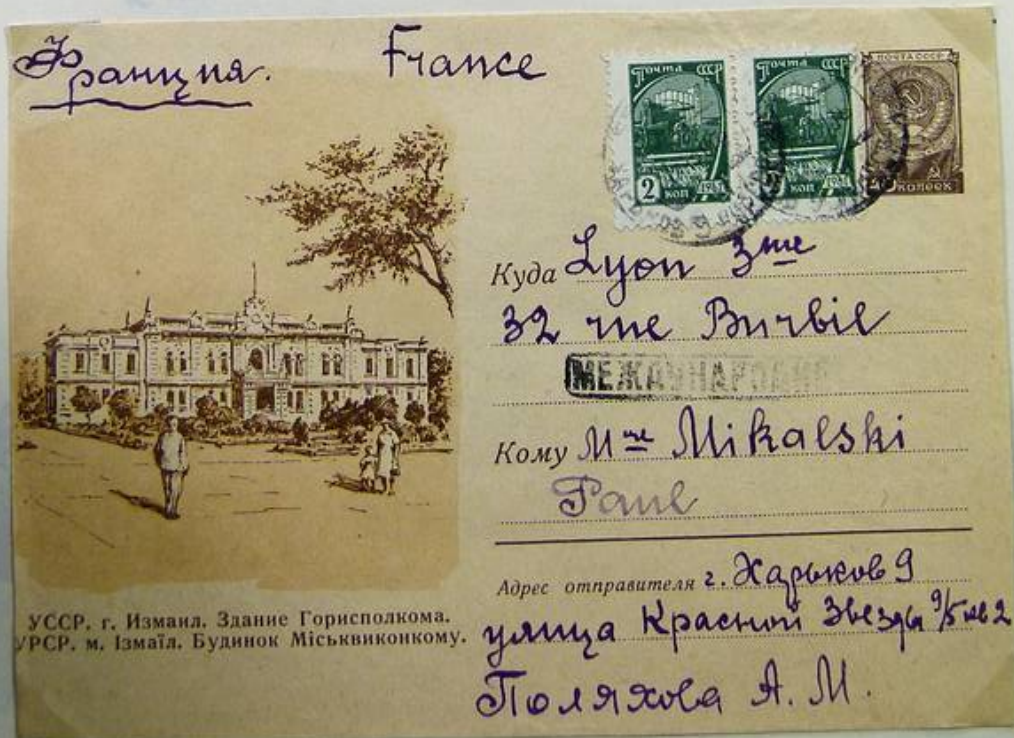 Франция. France
Почта СССР Почта СССР ПОЧТА СССР
2 коп 1961 коп 1961 40 копеек
Куда Lyon 3me
32 rue Burbil
МЕЖДУНАРОДНОЕ
Кому Mme Mikalski
Paul
Адрес отправителя г. Харьков 9
улица Красной Звезды 9/5 кв 2
Поляхова А. М.
УССР. г. Измаил. Здание Горисполкома.
УРСР. м. Ізмаїл. Будинок Міськвиконкому.